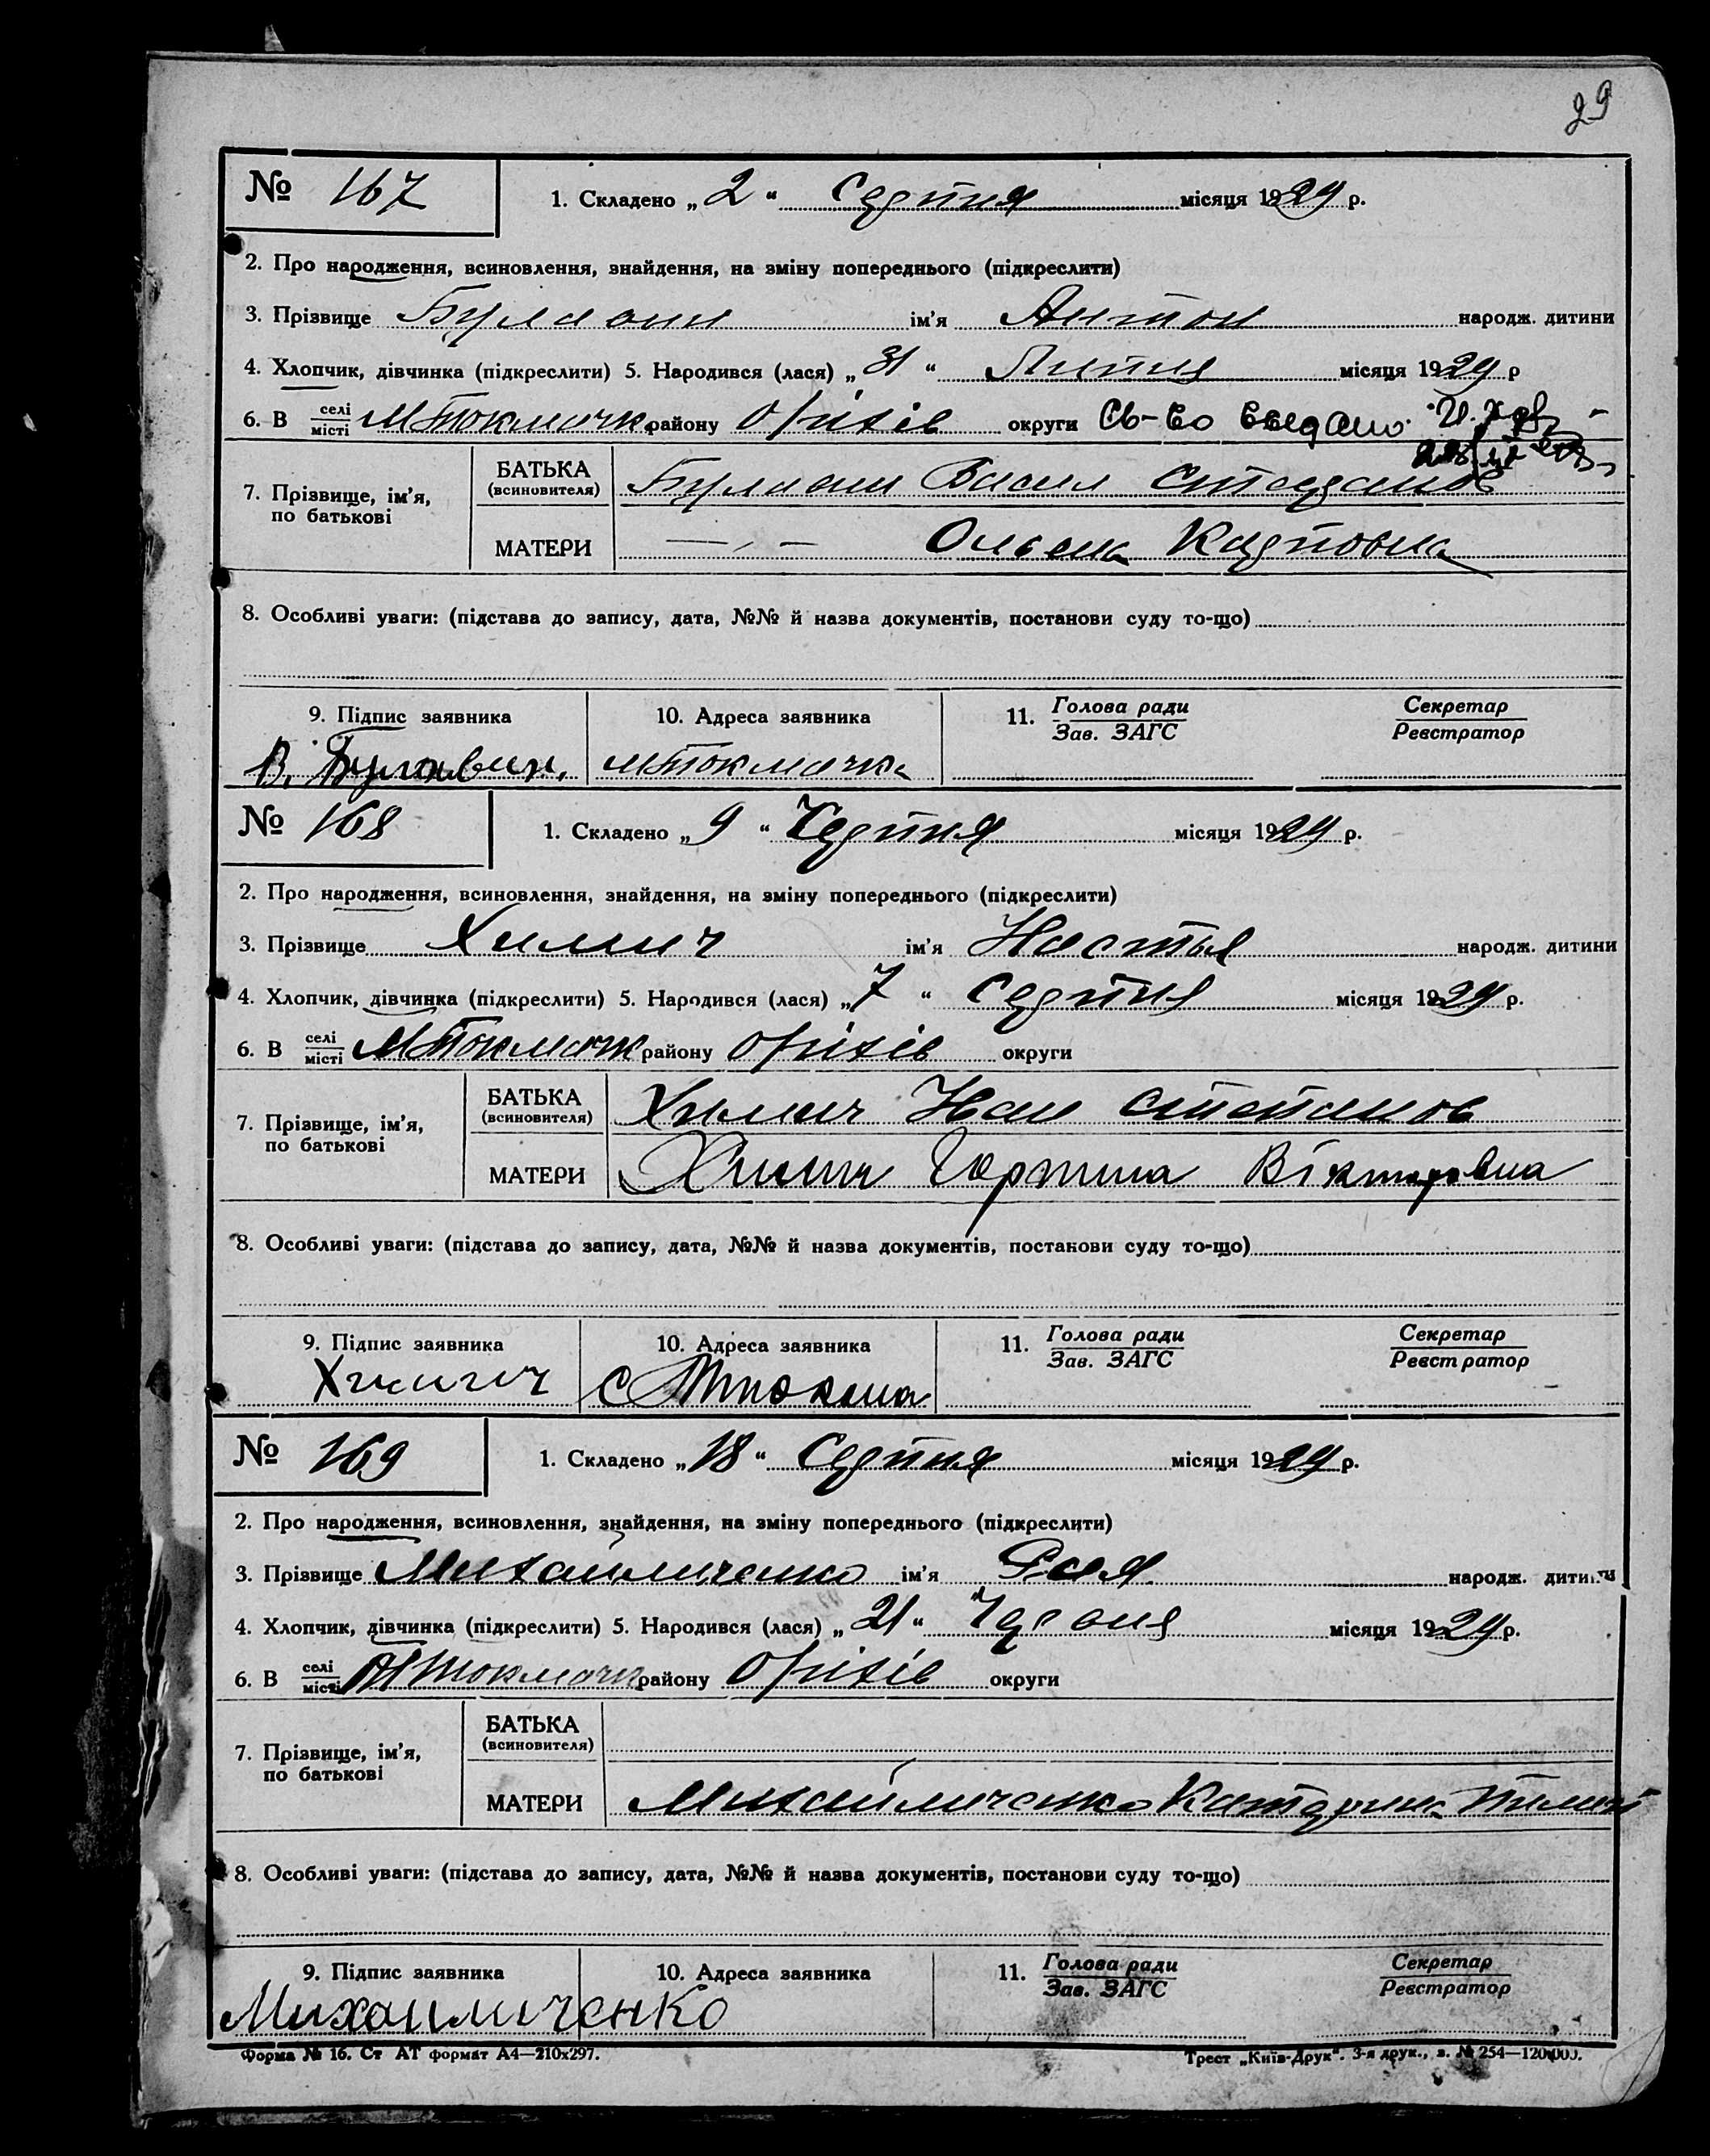 29
№ 167 1. Складено „2“ Серпня місяця 1929 р.
2. Про народження, всиновлення, знайдення, на зміну попереднього (підкреслити)
3. Прізвище ім'я Антон народж. дитини
4. Хлопчик, дівчинка (підкреслити) 5. Народився (лася) „31“ Липня місяця 1929 р
6. В селі/місті МТокмачк району Оріхів округи Св-во
7. Прізвище, ім'я, по батькові
БАТЬКА (всиновителя) Васил
МАТЕРИ — „ — Карповна
8. Особливі уваги: (підстава до запису, дата, №№ й назва документів, постанови суду то-що)
9. Підпис заявника 10. Адреса заявника 11. Голова ради/Зав. ЗАГС Секретар/Реєстратор
В. МТокмачка
№ 168 1. Складено „9“ Серпня місяця 1929 р.
2. Про народження, всиновлення, знайдення, на зміну попереднього (підкреслити)
3. Прізвище Химич ім'я Настья народж. дитини
4. Хлопчик, дівчинка (підкреслити) 5. Народився (лася) „7“ Серпня місяця 1929 р.
6. В селі/місті МТокмачк району Оріхів округи
7. Прізвище, ім'я, по батькові
БАТЬКА (всиновителя) Химич Иван Степанов
МАТЕРИ Химич Горпина Вікторовна
8. Особливі уваги: (підстава до запису, дата, №№ й назва документів, постанови суду то-що)
9. Підпис заявника 10. Адреса заявника 11. Голова ради/Зав. ЗАГС Секретар/Реєстратор
Химич С
№ 169 1. Складено „18“ Серпня місяця 1929 р.
2. Про народження, всиновлення, знайдення, на зміну попереднього (підкреслити)
3. Прізвище Михайличенко ім'я Рая народж. дитини
4. Хлопчик, дівчинка (підкреслити) 5. Народився (лася) „21“ місяця 1929 р.
6. В селі/місті МТокмачк району Оріхів округи
7. Прізвище, ім'я, по батькові
БАТЬКА (всиновителя)
МАТЕРИ Михайличенко Катерина
8. Особливі уваги: (підстава до запису, дата, №№ й назва документів, постанови суду то-що)
9. Підпис заявника 10. Адреса заявника 11. Голова ради/Зав. ЗАГС Секретар/Реєстратор
Михаиличенко
Форма № 16. Ст АТ формат А4—210х297. Трест „Київ-Друк“. 3-я друк., з. № 254—120.000.